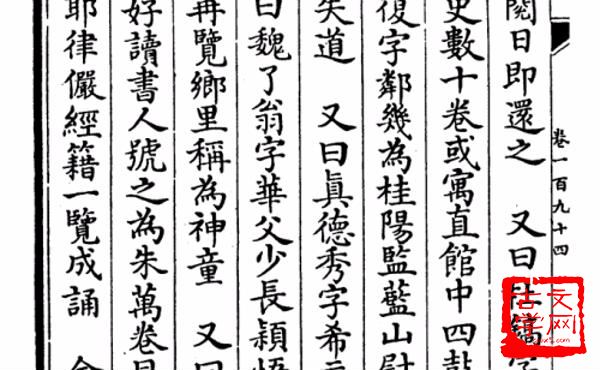 卷一百九十四
閱日即還之　又曰杜鎬字
史數十卷或寓直館中四鼓
復字鄰幾為桂陽監藍山尉
失道　又曰真德秀字希元
曰魏了翁字華父少長穎悟
再覽鄉里稱為神童　又曰
好讀書人號之為朱萬卷
耶律儼經籍一覽成誦
古文
学网